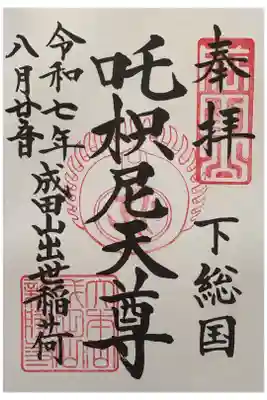 奉拝
下総国
吒枳尼天尊
成田山出世稲荷
令和七年
八月廿五日